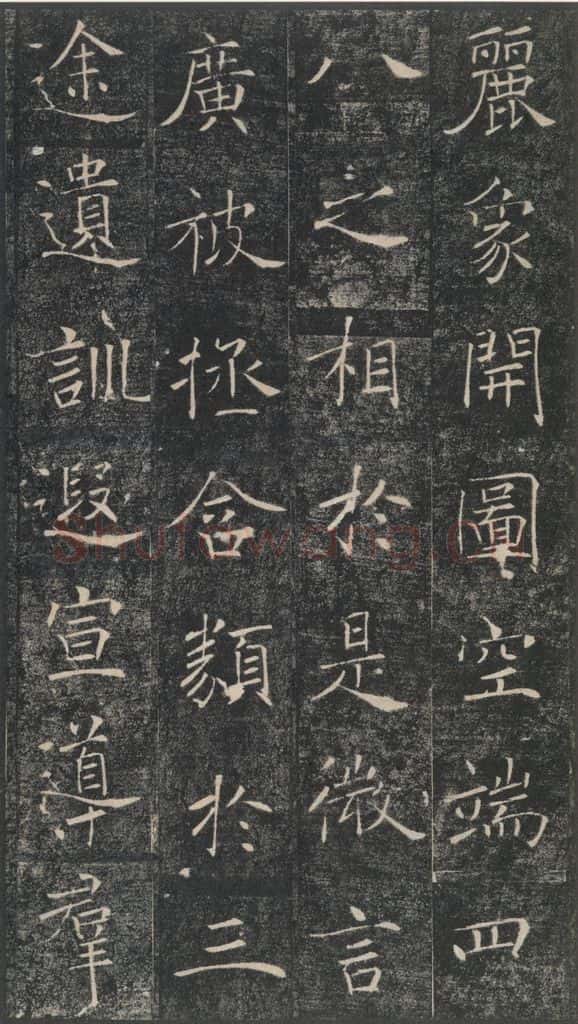 麗象開圖空端四
八之相於是微言
廣被拯含類於三
途遺訓遐宣導羣
Shufawang.cn